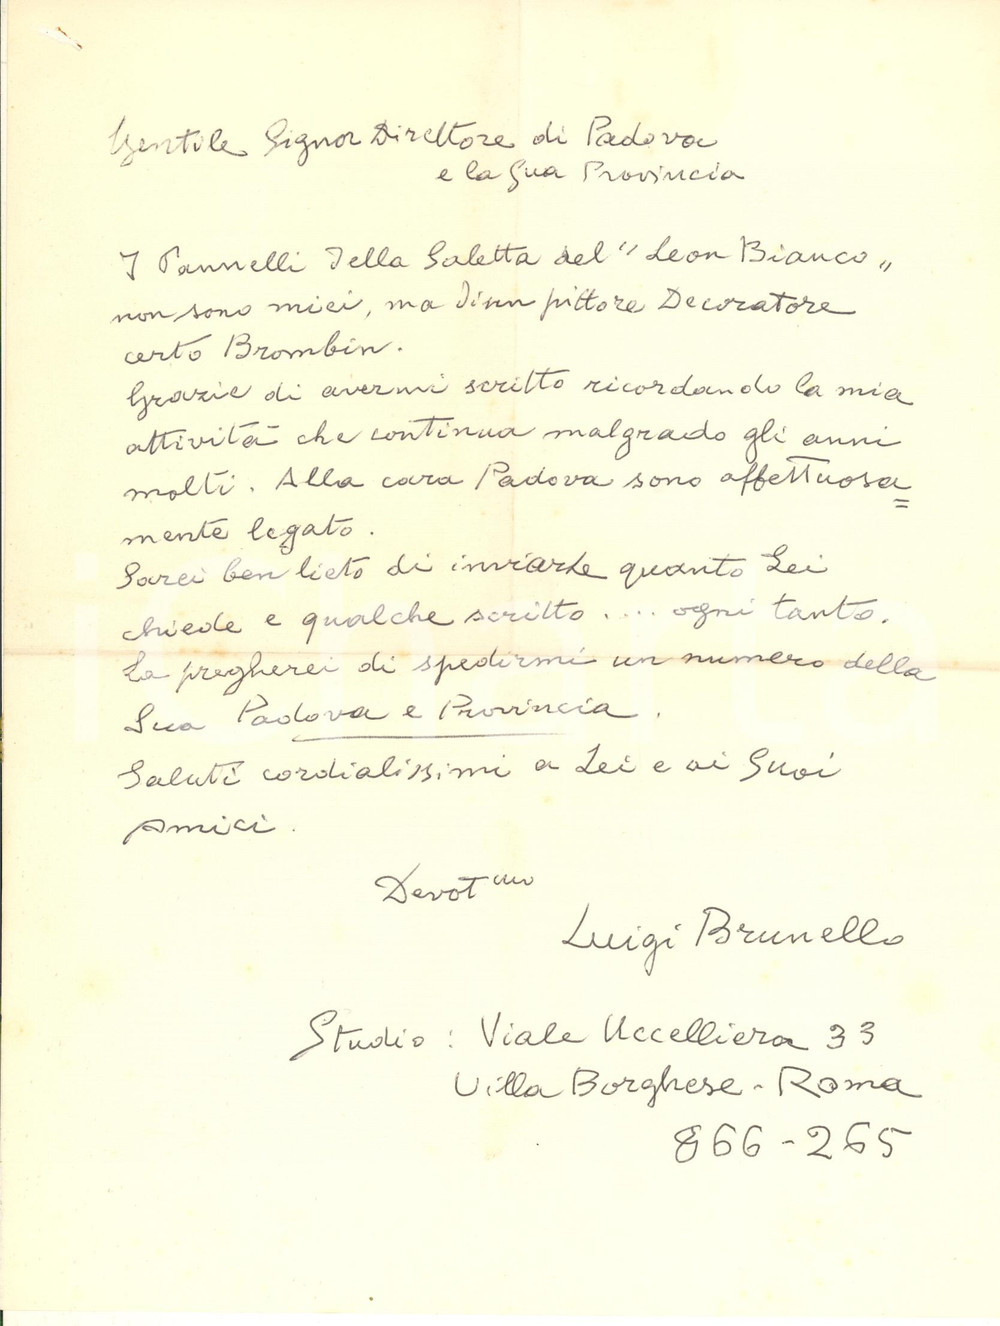 Gentile Signor Direttore di Padova
e la Sua Provincia
I Pannelli della Saletta del "Leon Bianco"
non sono miei, ma di un pittore Decoratore
certo Brombin.
Grazie di avermi scritto ricordando la mia
attività che continua malgrado gli anni
molti. Alla cara Padova sono affettuosa=
mente legato.
Sarei ben lieto di inviarLe quanto Lei
chiede e qualche scritto .... ogni tanto.
La pregherei di spedirmi un numero della
Sua Padova e Provincia.
Saluti cordialissimi a Lei e ai Suoi
Amici.
Devotmo
Luigi Brunello
Studio: Viale Uccelliera 33
Villa Borghese - Roma
866-265